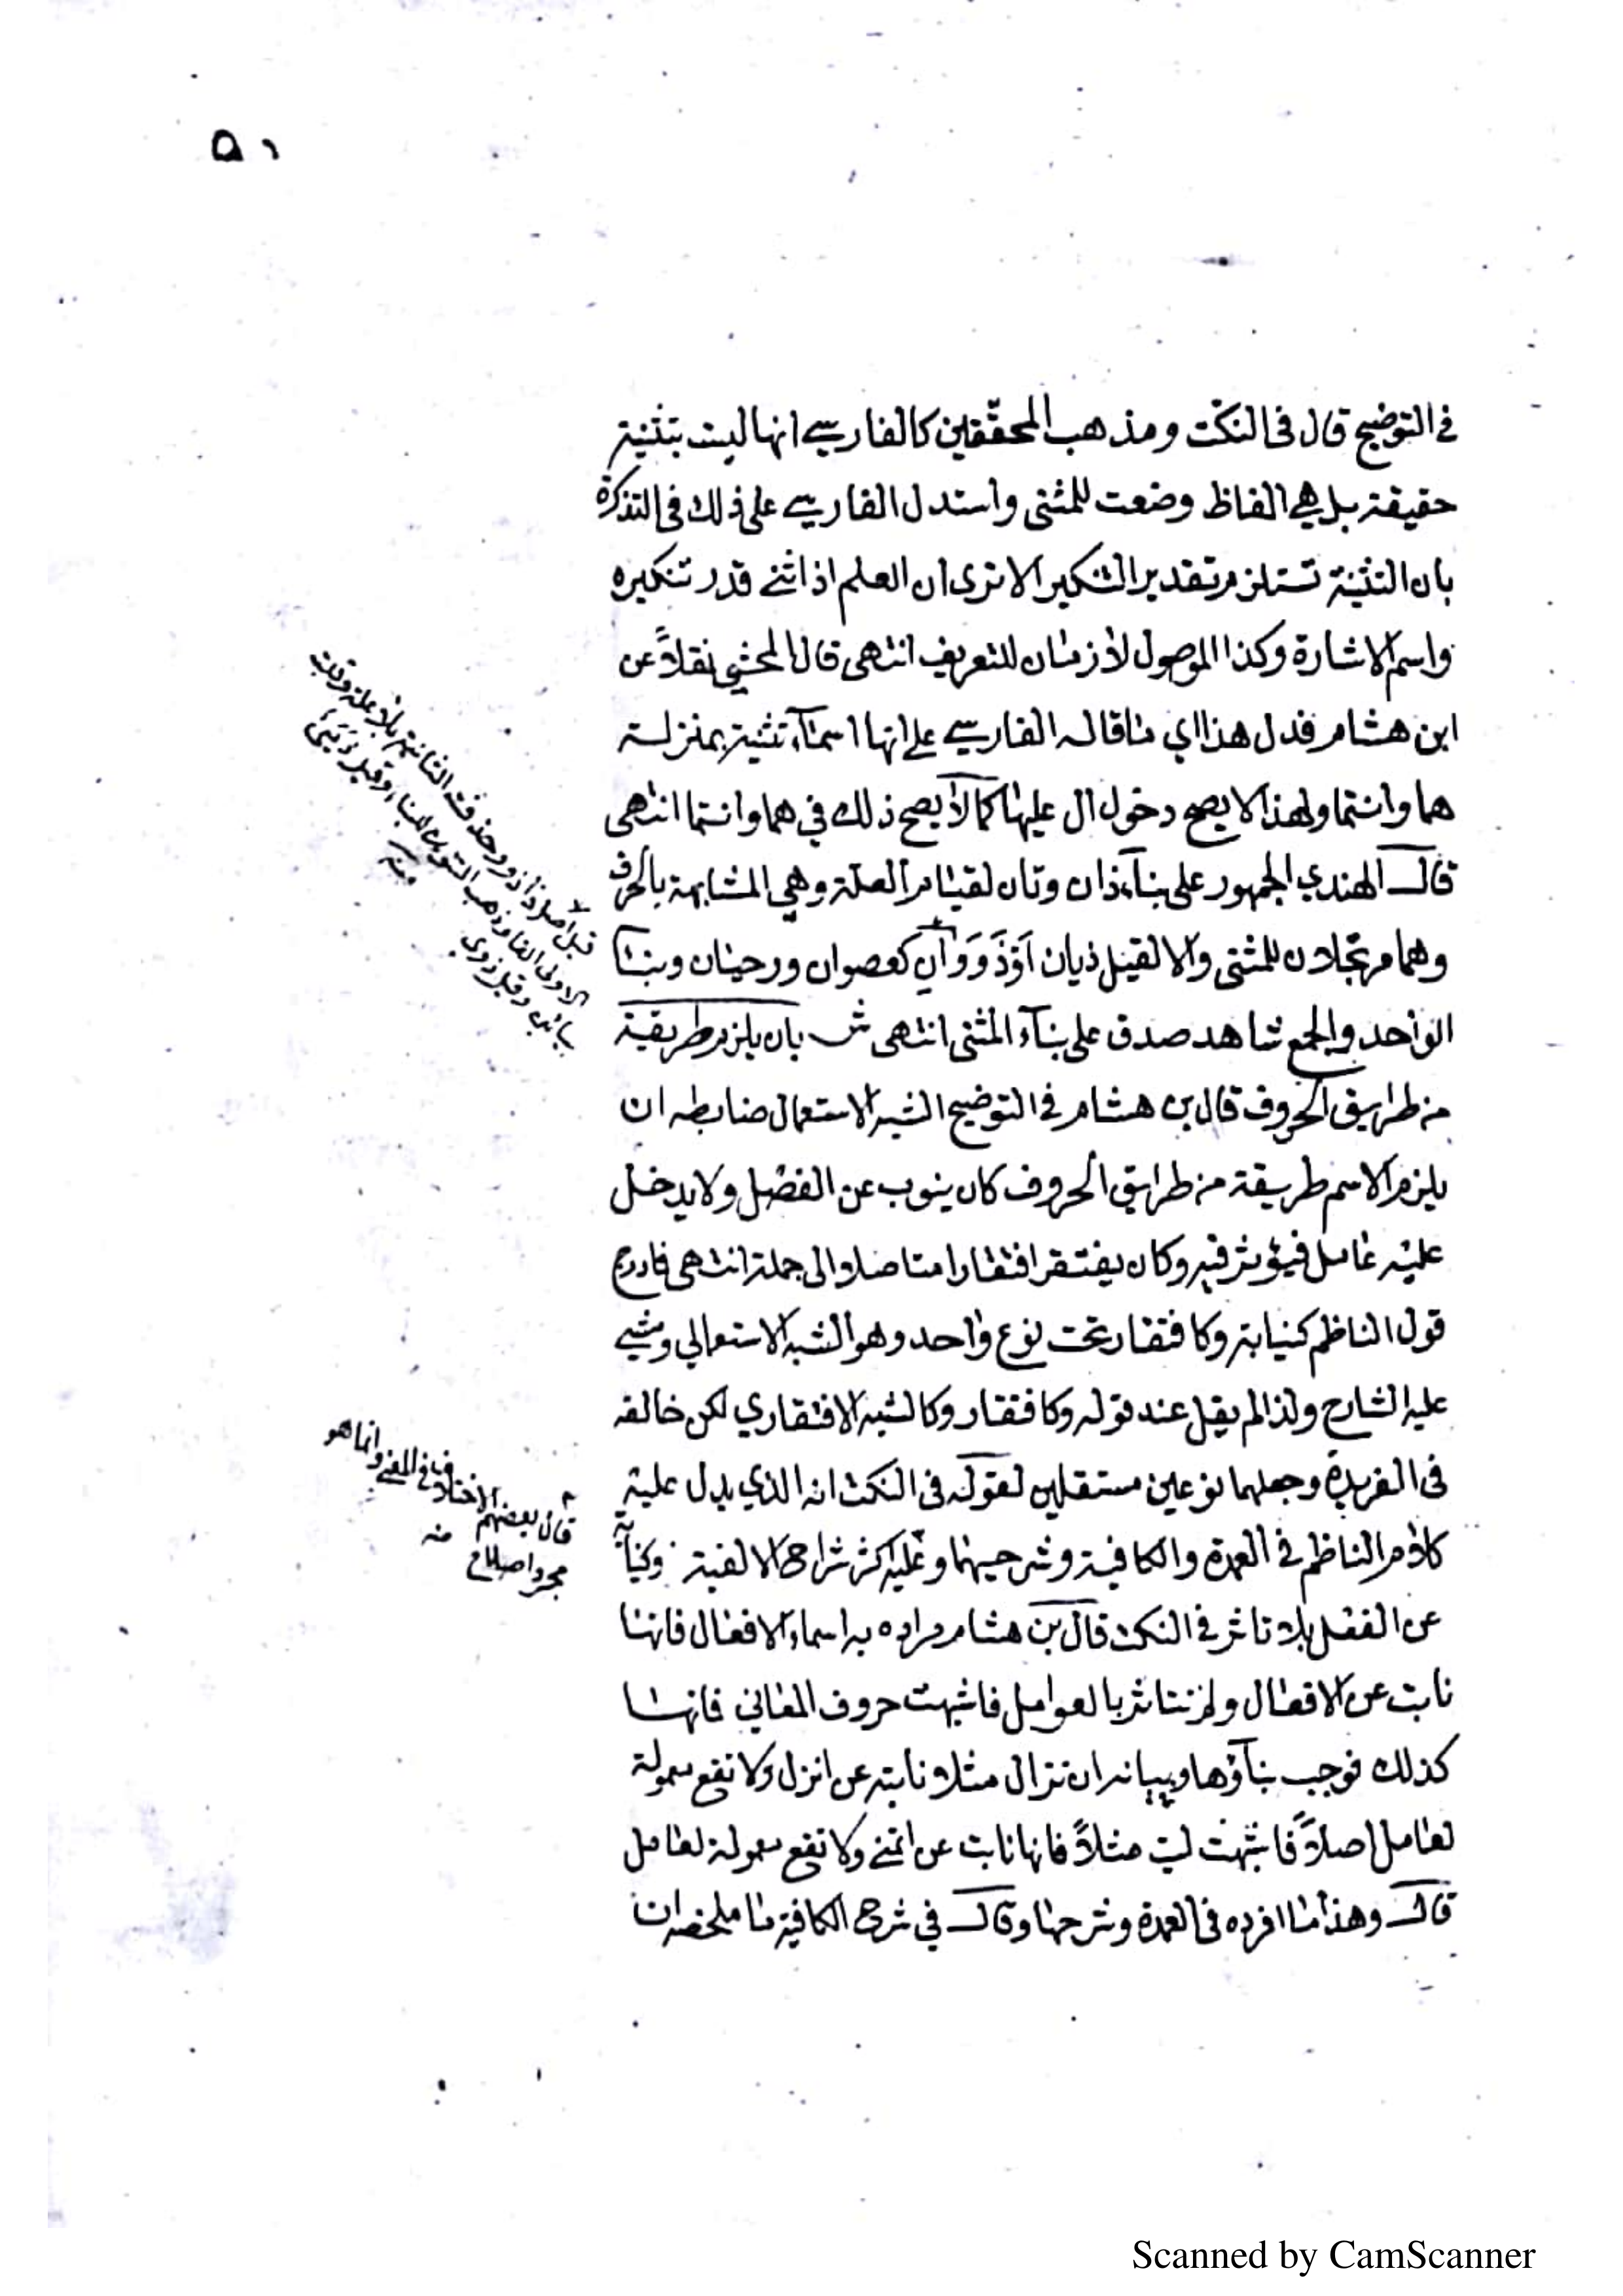 ٥١
في التوضيح قال في النكت ومذهب المحققين كالفارسي انها ليست بتثنية
حقيقة بل هي الفاظ وضعت للمثنى واستدل الفارسي على ذلك في التذكرة
بان التثنية تستلزم تقدير التنكير الا ترى ان العلم اذا ثني قدر تنكيره
واسم الاشارة وكذا الموصول لازمان للتعريف انتهى قال المحشي نقلاً عن
ابن هشام فدل هذا اي ما قاله الفارسي على انها اسماء تثنية بمنزلة
هما وانتما ولهذا لا يصح دخول ال عليها كما لا يصح ذلك في هما وانتما انتهى
قال الهندي الجمهور على بناء ذان وتان لقيام العلة وهي المشابهة بالحرف
وهما مرتجلان للمثنى والا لقيل ذيان اَوْ ذَوَوَان كعصوان ورحيان وبنا
الواحد والجمع شاهد صدق على بناء المثنى انتهى ش بان يلزم طريقة
من طرايق الحروف قال بن هشام في التوضيح الشبه الاستعمالي ضابطه ان
يلزم الاسم طريقة من طرايق الحروف كان ينوب عن الفعل ولا يدخل
عليه عامل فيؤثر فيه وكان يفتقر افتقارا متاصلا الى جملة انتهى فادرج
قول الناظم كنيابة وكافتقار تحت نوع واحد وهو الشبه الاستعمالي ومشي
عليه الشارح ولذا لم يقل عند قوله وكافتقار وكالشبه الافتقاري لكن خالفه
في الفريدة وجعلهما نوعين مستقلين لقوله في النكت انه الذي يدل عليه
كلام الناظم في العمدة والكافية وشرحيهما وعليه اكثر شراح الالفية وكنيابة
عن الفعل بلا تاثر في النكت قال بن هشام مراده به اسماء الافعال فانها
نابت عن الافعال ولم تتاثر بالعوامل فاشبهت حروف المعاني فانها
كذلك فوجب بناؤها وبيانه ان نزال مثلا نابته عن انزل ولا تقع معمولة
لعامل اصلاً فاشبهت ليت مثلاً فانها نابت عن اتمنى ولا تقع معمولة لعامل
قال وهذا ما افرده في العمدة وشرحها وقال في شرح الكافية ما ملخصه ان
قيل اصل ذا ذوو حذفت الثانية بلا علة وقلبت
الاولى الفا وذهب التنوين للبناء وقيل ذَيَيٌ
وقيل ذوي
منه
قال بعضهم الاختلاف في اللفظ وانما هو
مجرد اصطلاح منه
Scanned by CamScanner